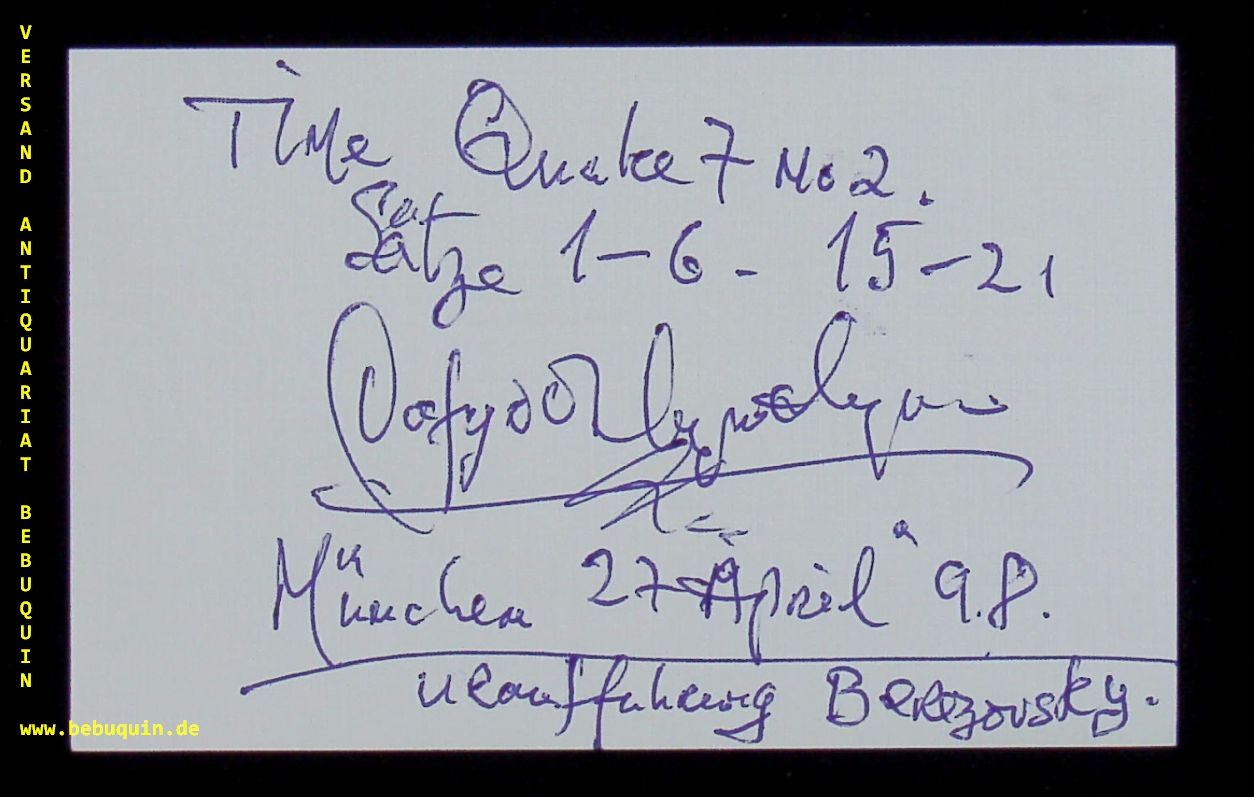 VERSAND ANTIQUARIAT BEBUQUIN
Time Quake 7 No 2.
Sätze 1-6 - 15-21
München 27 April 98.
Urauffuhrung Berezovsky.
www.bebuquin.de